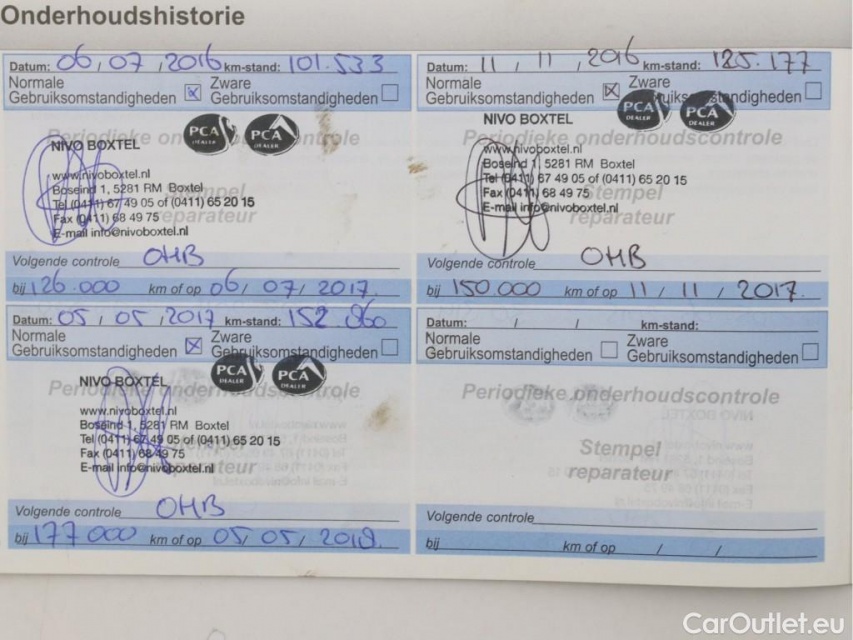 Onderhoudshistorie
Datum: 06, 07, 2016 km-stand: 101.533
Normale Gebruiksomstandigheden ☒ Zware Gebruiksomstandigheden ☐
Periodieke onderhoudscontrole
PCA DEALER PCA DEALER
NIVO BOXTEL
www.nivoboxtel.nl
Boseind 1, 5281 RM Boxtel
Stempel
Tel (0411) 67 49 05 of (0411) 65 20 15
Fax (0411) 68 49 75
reparateur
E-mail info@nivoboxtel.nl
Volgende controle OHB
bij 126.000 km of op 06/ 07/ 2017.
Datum: 11 / 11 , 2016 km-stand: 125.177
Normale Gebruiksomstandigheden ☒ Zware Gebruiksomstandigheden ☐
PCA DEALER PCA DEALER
NIVO BOXTEL
Periodieke onderhoudscontrole
www.nivoboxtel.nl
Boseind 1, 5281 RM Boxtel
Tel (0411) 67 49 05 of (0411) 65 20 15
Fax (0411) 68 49 75
Stempel
E-mail info@nivoboxtel.nl
reparateur
Volgende controle OHB
bij 150000 km of op 11 / 11 / 2017.
Datum: 05 / 05 / 2017 km-stand: 152 060
Normale Gebruiksomstandigheden ☒ Zware Gebruiksomstandigheden ☐
PCA DEALER PCA DEALER
NIVO BOXTEL
Periodieke onderhoudscontrole
www.nivoboxtel.nl
Boseind 1, 5281 RM Boxtel
Tel (0411) 67 49 05 of (0411) 65 20 15
Fax (0411) 68 49 75
E-mail info@nivoboxtel.nl
reparateur
Volgende controle OHB
bij 177000 km of op 05/ 05/ 2018.
Datum: / / km-stand:
Normale Gebruiksomstandigheden ☐ Zware Gebruiksomstandigheden ☐
Periodieke onderhoudscontrole
Stempel
reparateur
Volgende controle
bij km of op / /
CarOutlet.eu